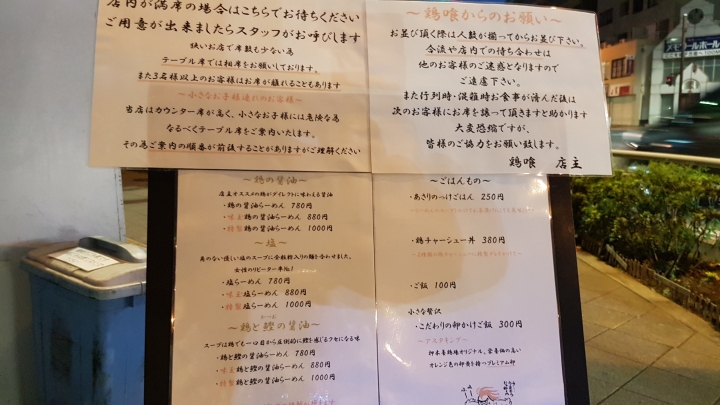 店内が満席の場合はこちらでお待ちください
ご用意が出来ましたらスタッフがお呼びします
狭いお店で席数も少ない為
テーブル席では相席をお願いしております。
また3名様以上のお客様はお席が離れることもあります
〜小さなお子様連れのお客様〜
当店はカウンター席が高く、小さなお子様には危険な為
なるべくテーブル席をご案内いたします。
その為ご案内の順番が前後することがありますがご理解ください
〜鶏喰からのお願い〜
お並び頂く際は人数が揃ってからお並び下さい。
合流や店内での待ち合わせは
他のお客様のご迷惑となりますので
ご遠慮下さい。
また行列時・混雑時お食事が済んだ後は
次のお客様にお席を譲って頂きますと助かります
大変恐縮ですが、
皆様のご協力をお願い致します。
鶏喰 店主
〜鶏の醤油〜
店主オススメの鶏がダイレクトに味わえる醤油
・鶏の醤油らーめん 780円
・味玉鶏の醤油らーめん 880円
・特製鶏の醤油らーめん 1000円
〜塩〜
女性のリピーター率No1
・塩らーめん 780円
・味玉塩らーめん 880円
・特製塩らーめん 1000円
〜鶏と鰹の醤油〜
スープは鶏でも一口目から圧倒的に鰹を感じるクセになる味
・鶏と鰹の醤油らーめん 780円
・味玉鶏と鰹の醤油らーめん 880円
・特製鶏と鰹の醤油らーめん 1000円
〜ごはんもの〜
・あさりのっけごはん 250円
・鶏チャーシュー丼 380円
・ご飯 100円
小さな贅沢
・こだわりの卵かけご飯 300円
オレンジ色の卵黄を持つプレミアム卵